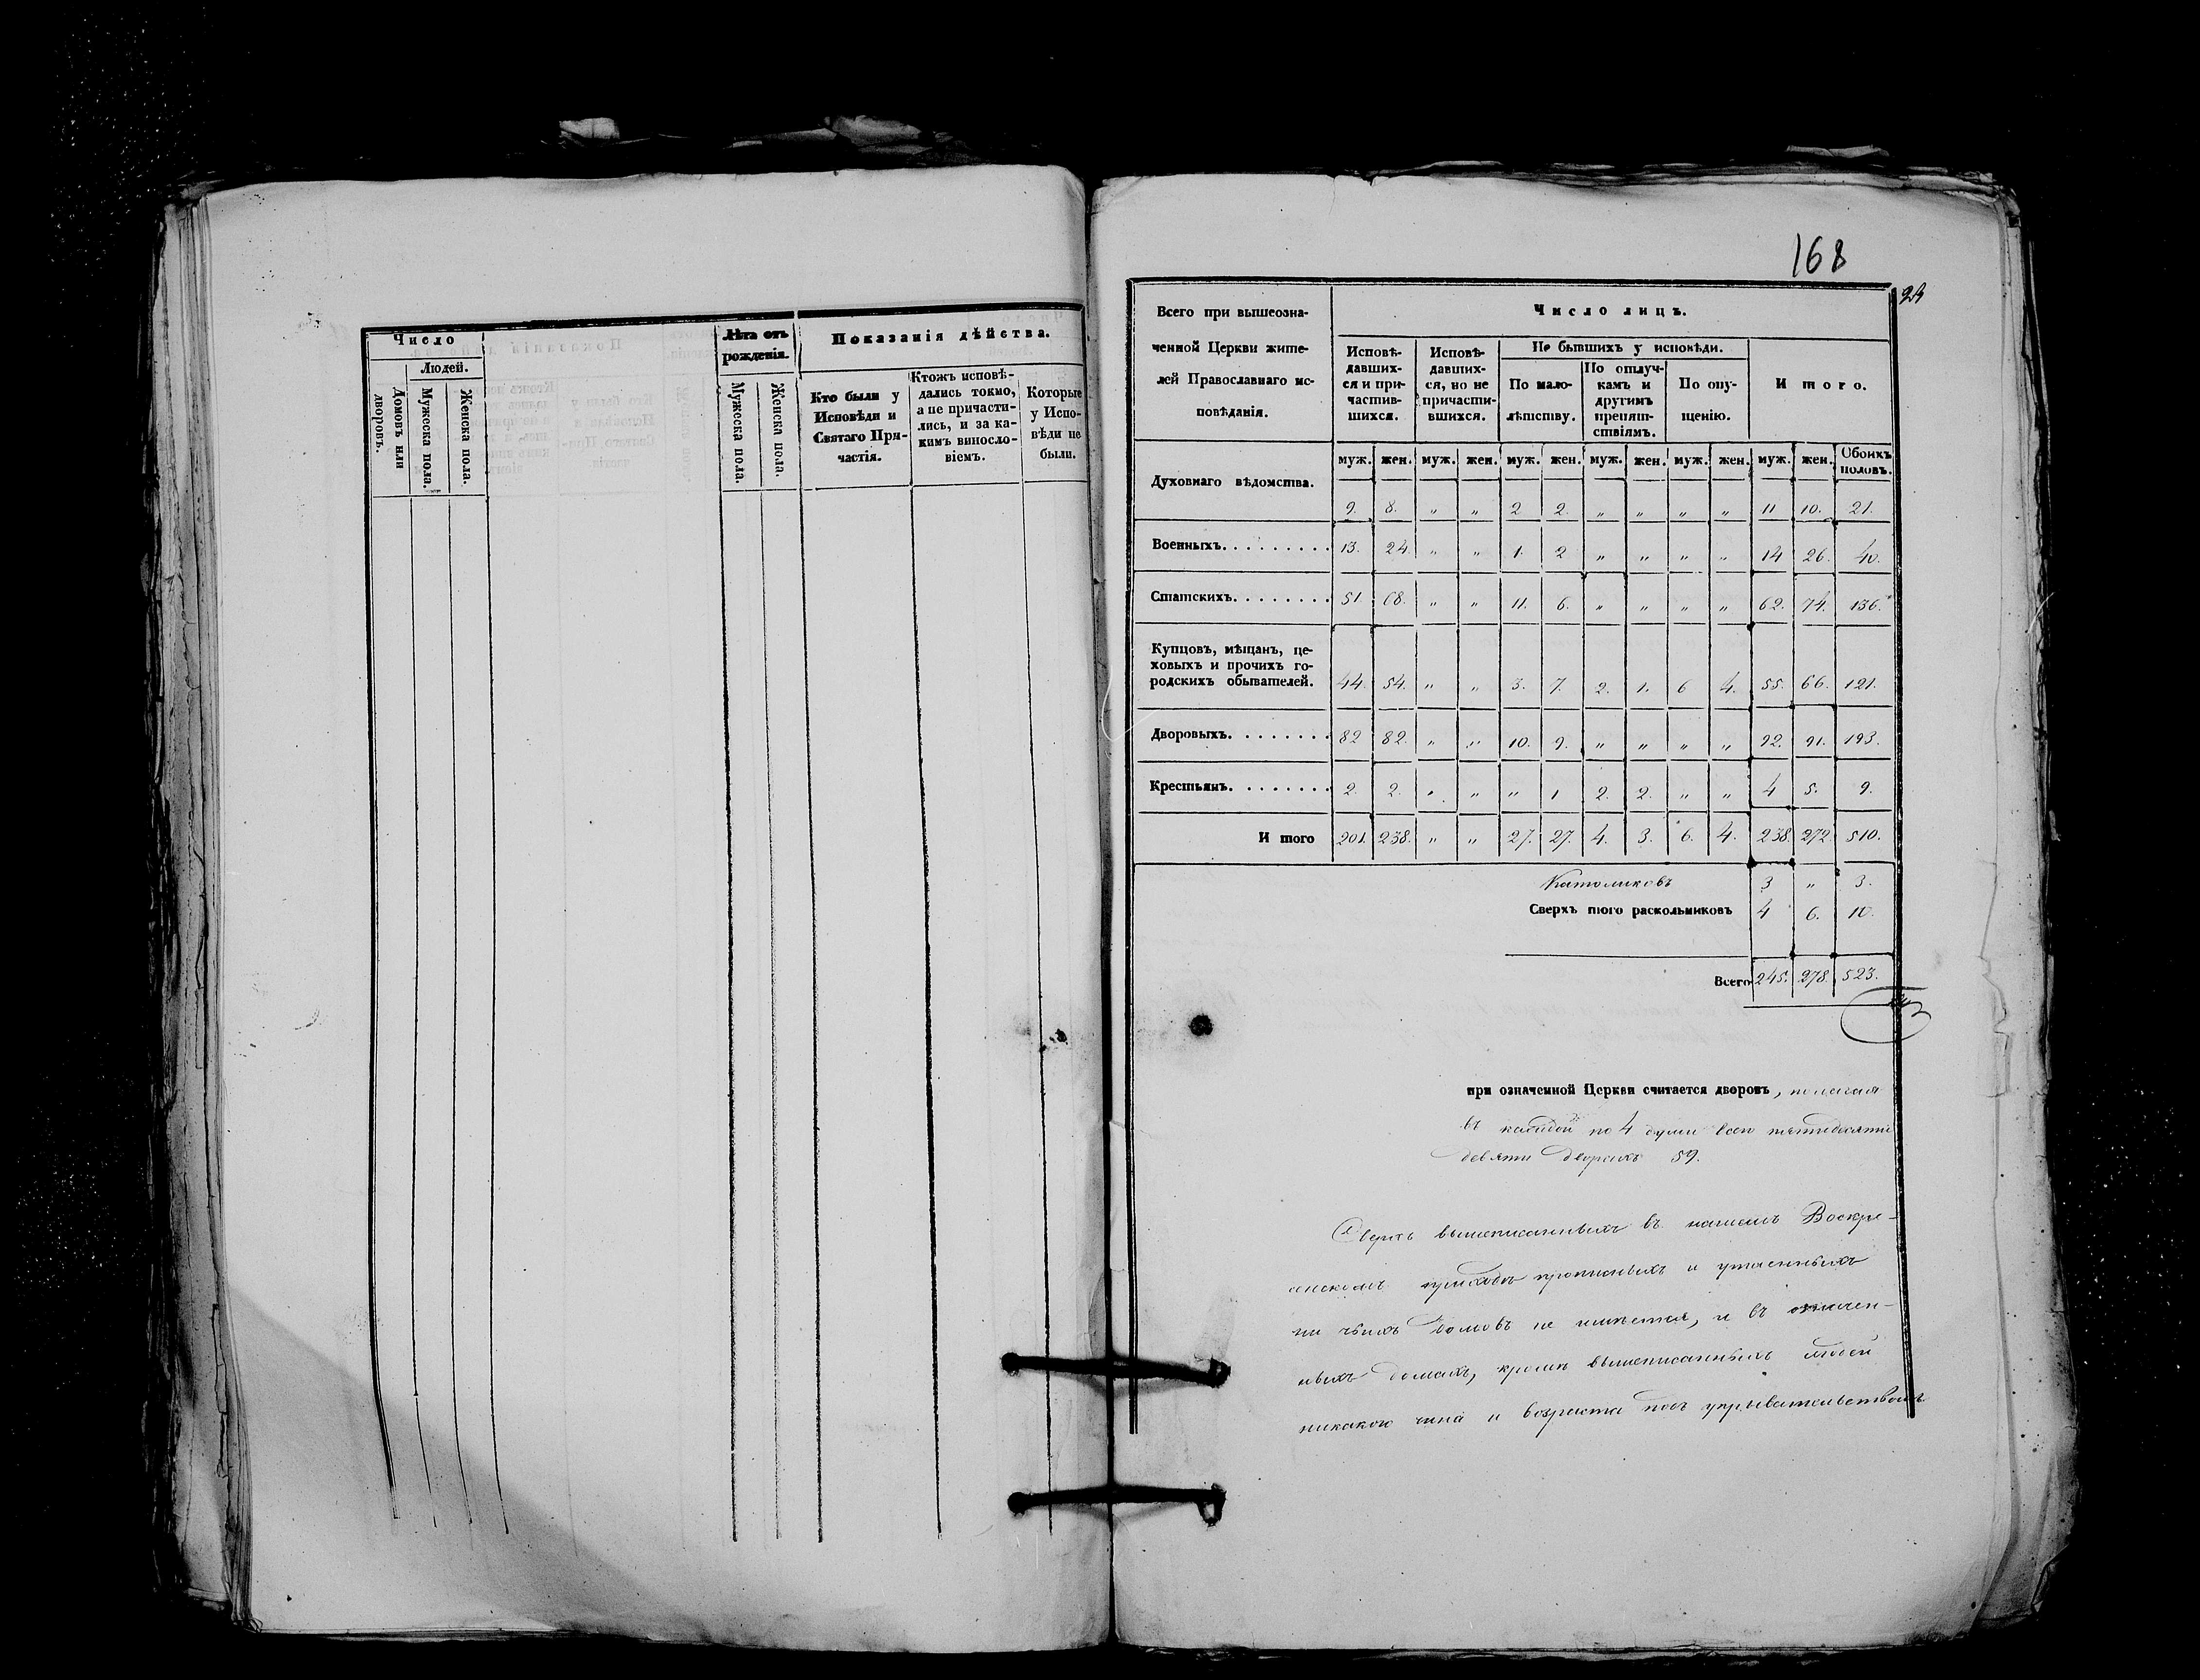 Число
Людей.
Домовъ или дворовъ.
Мужеска пола.
Женска пола.
Лѣта отъ рожденія.
Мужеска пола.
Женска пола.
Показанія дѣйства.
Кто были у Исповѣди и Святаго Причастія.
Ктожъ исповѣдались токмо, а не причастились, и за какимъ винословіемъ.
Которые у Исповѣди не были.
168
Всего при вышеозна-
ченной Церкви жите-
лей Православнаго ис-
повѣданія.
Число лицъ.
Исповѣ-
давших-
ся и при-
частив-
шихся.
Исповѣ-
давших-
ся, но не
причасти-
вшихся.
Не бывшихъ у исповѣди.
По мало-
лѣтству.
По отлуч-
камъ и
другимъ
препят-
ствіямъ.
По опу-
щенію.
И того.
муж. жен. муж. жен. муж. жен. муж. жен. муж. жен. муж. жен. Обоихъ половъ.
Духовнаго вѣдомства. 9. 8. " " 2 2. " " " " 11 10. 21.
Военныхъ. 13. 24. " " 1. 2 " " " " 14 26. 40.
Статскихъ. 51. 68. " " 11. 6. " " " " 62. 74. 136.
Купцовъ, мѣщанъ, це-
ховыхъ и прочихъ го-
родскихъ обывателей. 44. 54. " " 3. 7. 2. 1. 6 4. 55. 66. 121.
Дворовыхъ. 82 82. " " 10. 9. " " " " 92. 91. 193.
Крестьянъ. 2. 2. " " " 1 2. 2. " " 4 5. 9.
И того 201. 238. " " 27. 27. 4. 3. 6. 4. 238. 272. 510.
Католиковъ 3 " 3.
Сверхъ того раскольниковъ 4 6. 10.
Всего 245. 278. 523.
при означенной Церкви считается дворовъ, полагая
въ каждой по 4 души всего пятидесяти
девяти дворахъ 59.
Сверхъ вышеписанныхъ въ нашемъ Воскре-
сенскомъ приходѣ прописныхъ и утаенныхъ
ни чьихъ домовъ не имѣется, и въ означен-
ныхъ домахъ, кромѣ вышеписанныхъ людей
никакого чина и возраста подъ укрывательствомъ